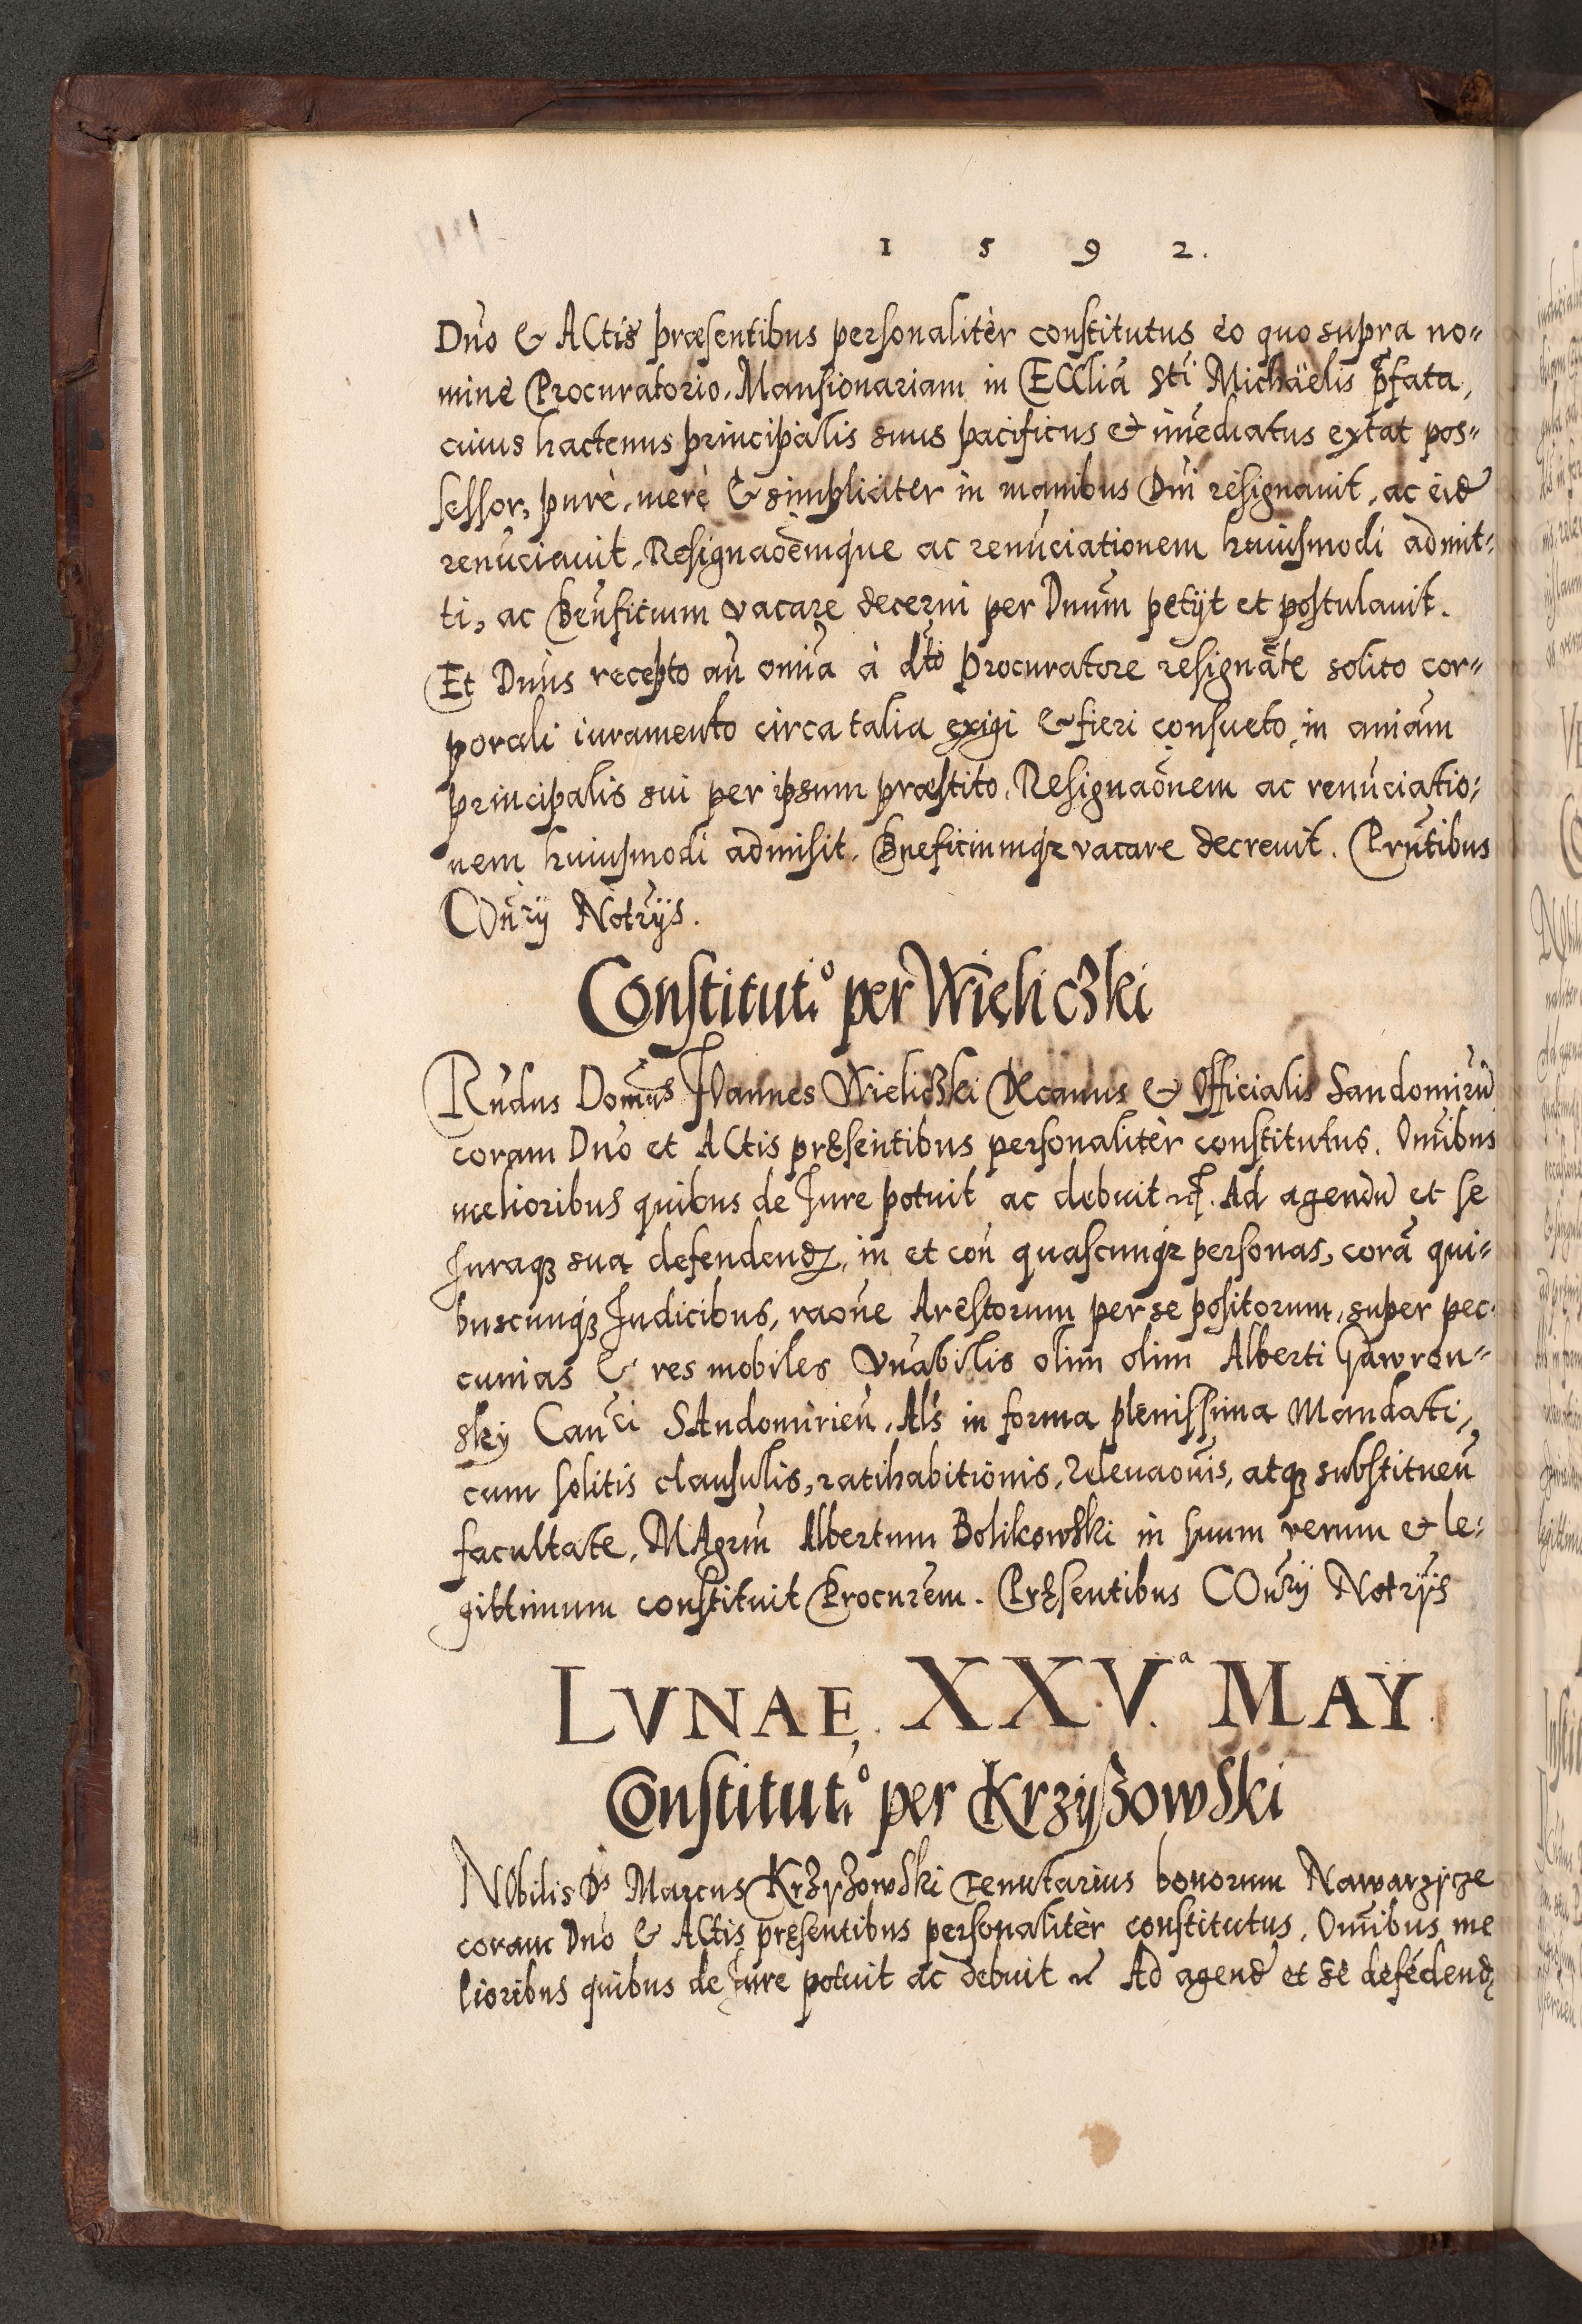 1 5 9 2.
Dnō & ACtis præsentibus personalitèr constitutus eo quo supra no=
mine Procuratorio. Mansionariam in ECCliā Sti Michäelis p̄fata,
cuius hactenus principalis suus pacificus & im̄ediatus extat pos=
sessor, purè, merè & simpliciter in manibus Dnī resignauit, ac eid
renūciauit. Resignaōēmque ac renūciationem huiusmodi admit=
ti, ac Bēnficium vacare decerni per Dnūm petÿt et postulauit.
Et Dnūs recepto an̄ omīa à dto Procuratore resignāte solito cor=
porali iuramento circa talia exigi & fieri consueto, in aniām
principalis sui per ipsum præstito. Resignaōnem ac renūciatio=
nem huiusmodi admisit. Bneficiumq̢ vacare decreuit. Prntībus
COnr̄ij Notr̄ijs.
Constitut.o per Wieliczki
Rndūs Domnūs IOannes Wieliczki Decanus & Officialis Sandomirn̄
coram Dnō et ACtis pręsentibus personalitèr constitutus. Omībus
melioribus quibus de Iure potuit ac debuit etc. Ad agendū et se
Iuraq̢ sua defendend, in et con̄ quascunq̢ personas, corā qui=
buscunq̢ Iudicibus, raōne Arestorum per se positorum, super pec=
cunias & res mobiles Vnābilis olim olim Alberti Gawron=
skij Canci SAndomirien̄. Als in forma plenissima Mandati,
cum solitis clausulis, ratihabitionis, relevaōnis, atq̢ substituen̄
facultate, MAgrm̄ Albertum Bolikowski in suum verum & le=
gittimum constituit Procurēm. Pręsentibus COnr̄ij Notr̄ijs
LVNAE, XXV.a MAY.
Constitut.o per Krzyżowski
NObilis Ds Marcus Krzyżowski tenutarius bonorum Nawarzyce
coram Dnō & ACtis pręsentibus personalitèr constitutus. Omībus me
lioribus quibus de Iure potuit ac debuit etc Ad agend et se defēdend